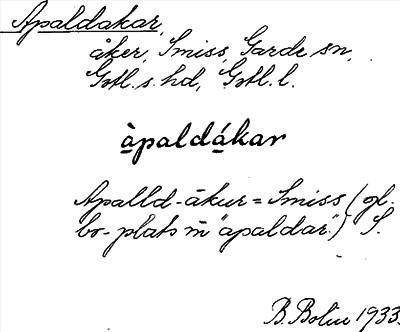 Apaldakar,
åker, Smiss, Garde sn,
Gotl. s. hd, Gotl. l.
àpaldákar
Apalld-åkur = Smiss (gl.
bo-plats m "apaldar".) S.
B. Bolin 1933.